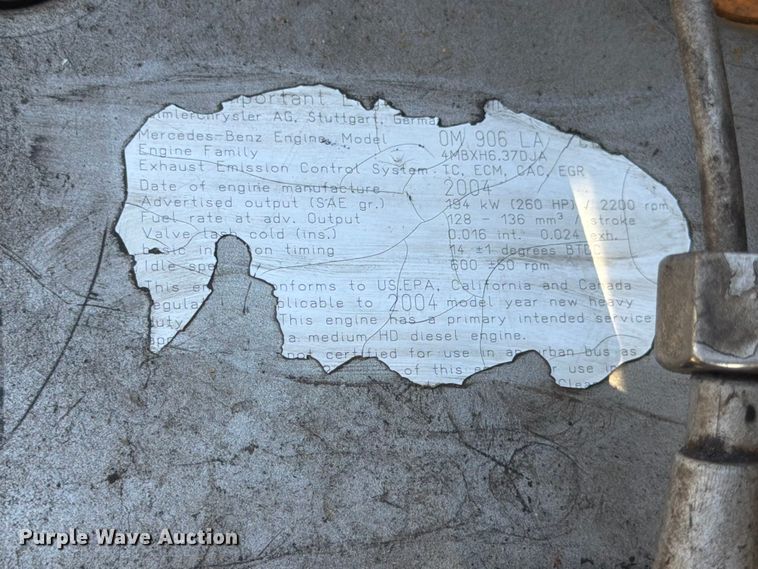 mportant
imlerChrysler AG, Stuttgart, Germa
Mercedes-Benz Engine Model OM 906 LA
Engine Family 4MBXH6.37DJA
Exhaust Emission Control System IC, ECM, CAC, EGR
Date of engine manufacture 2004
Advertised output (SAE gr.) 194 kW (260 HP) / 2200 rpm
Fuel rate at adv. Output 128 - 136 mm³ / stroke
Valve lash cold (ins.) 0.016 int. 0.024 exh.
basic in on timing 14 ±1 degrees BTDC
Idle spe 600 50 rpm
This en onforms to US.EPA, California and Canada
egula plicable to 2004 model year new heavy
uty This engine has a primary intended service
a medium HD diesel engine.
not certified for use in an urban bus as
of this en or use in
Clea
Purple Wave Auction